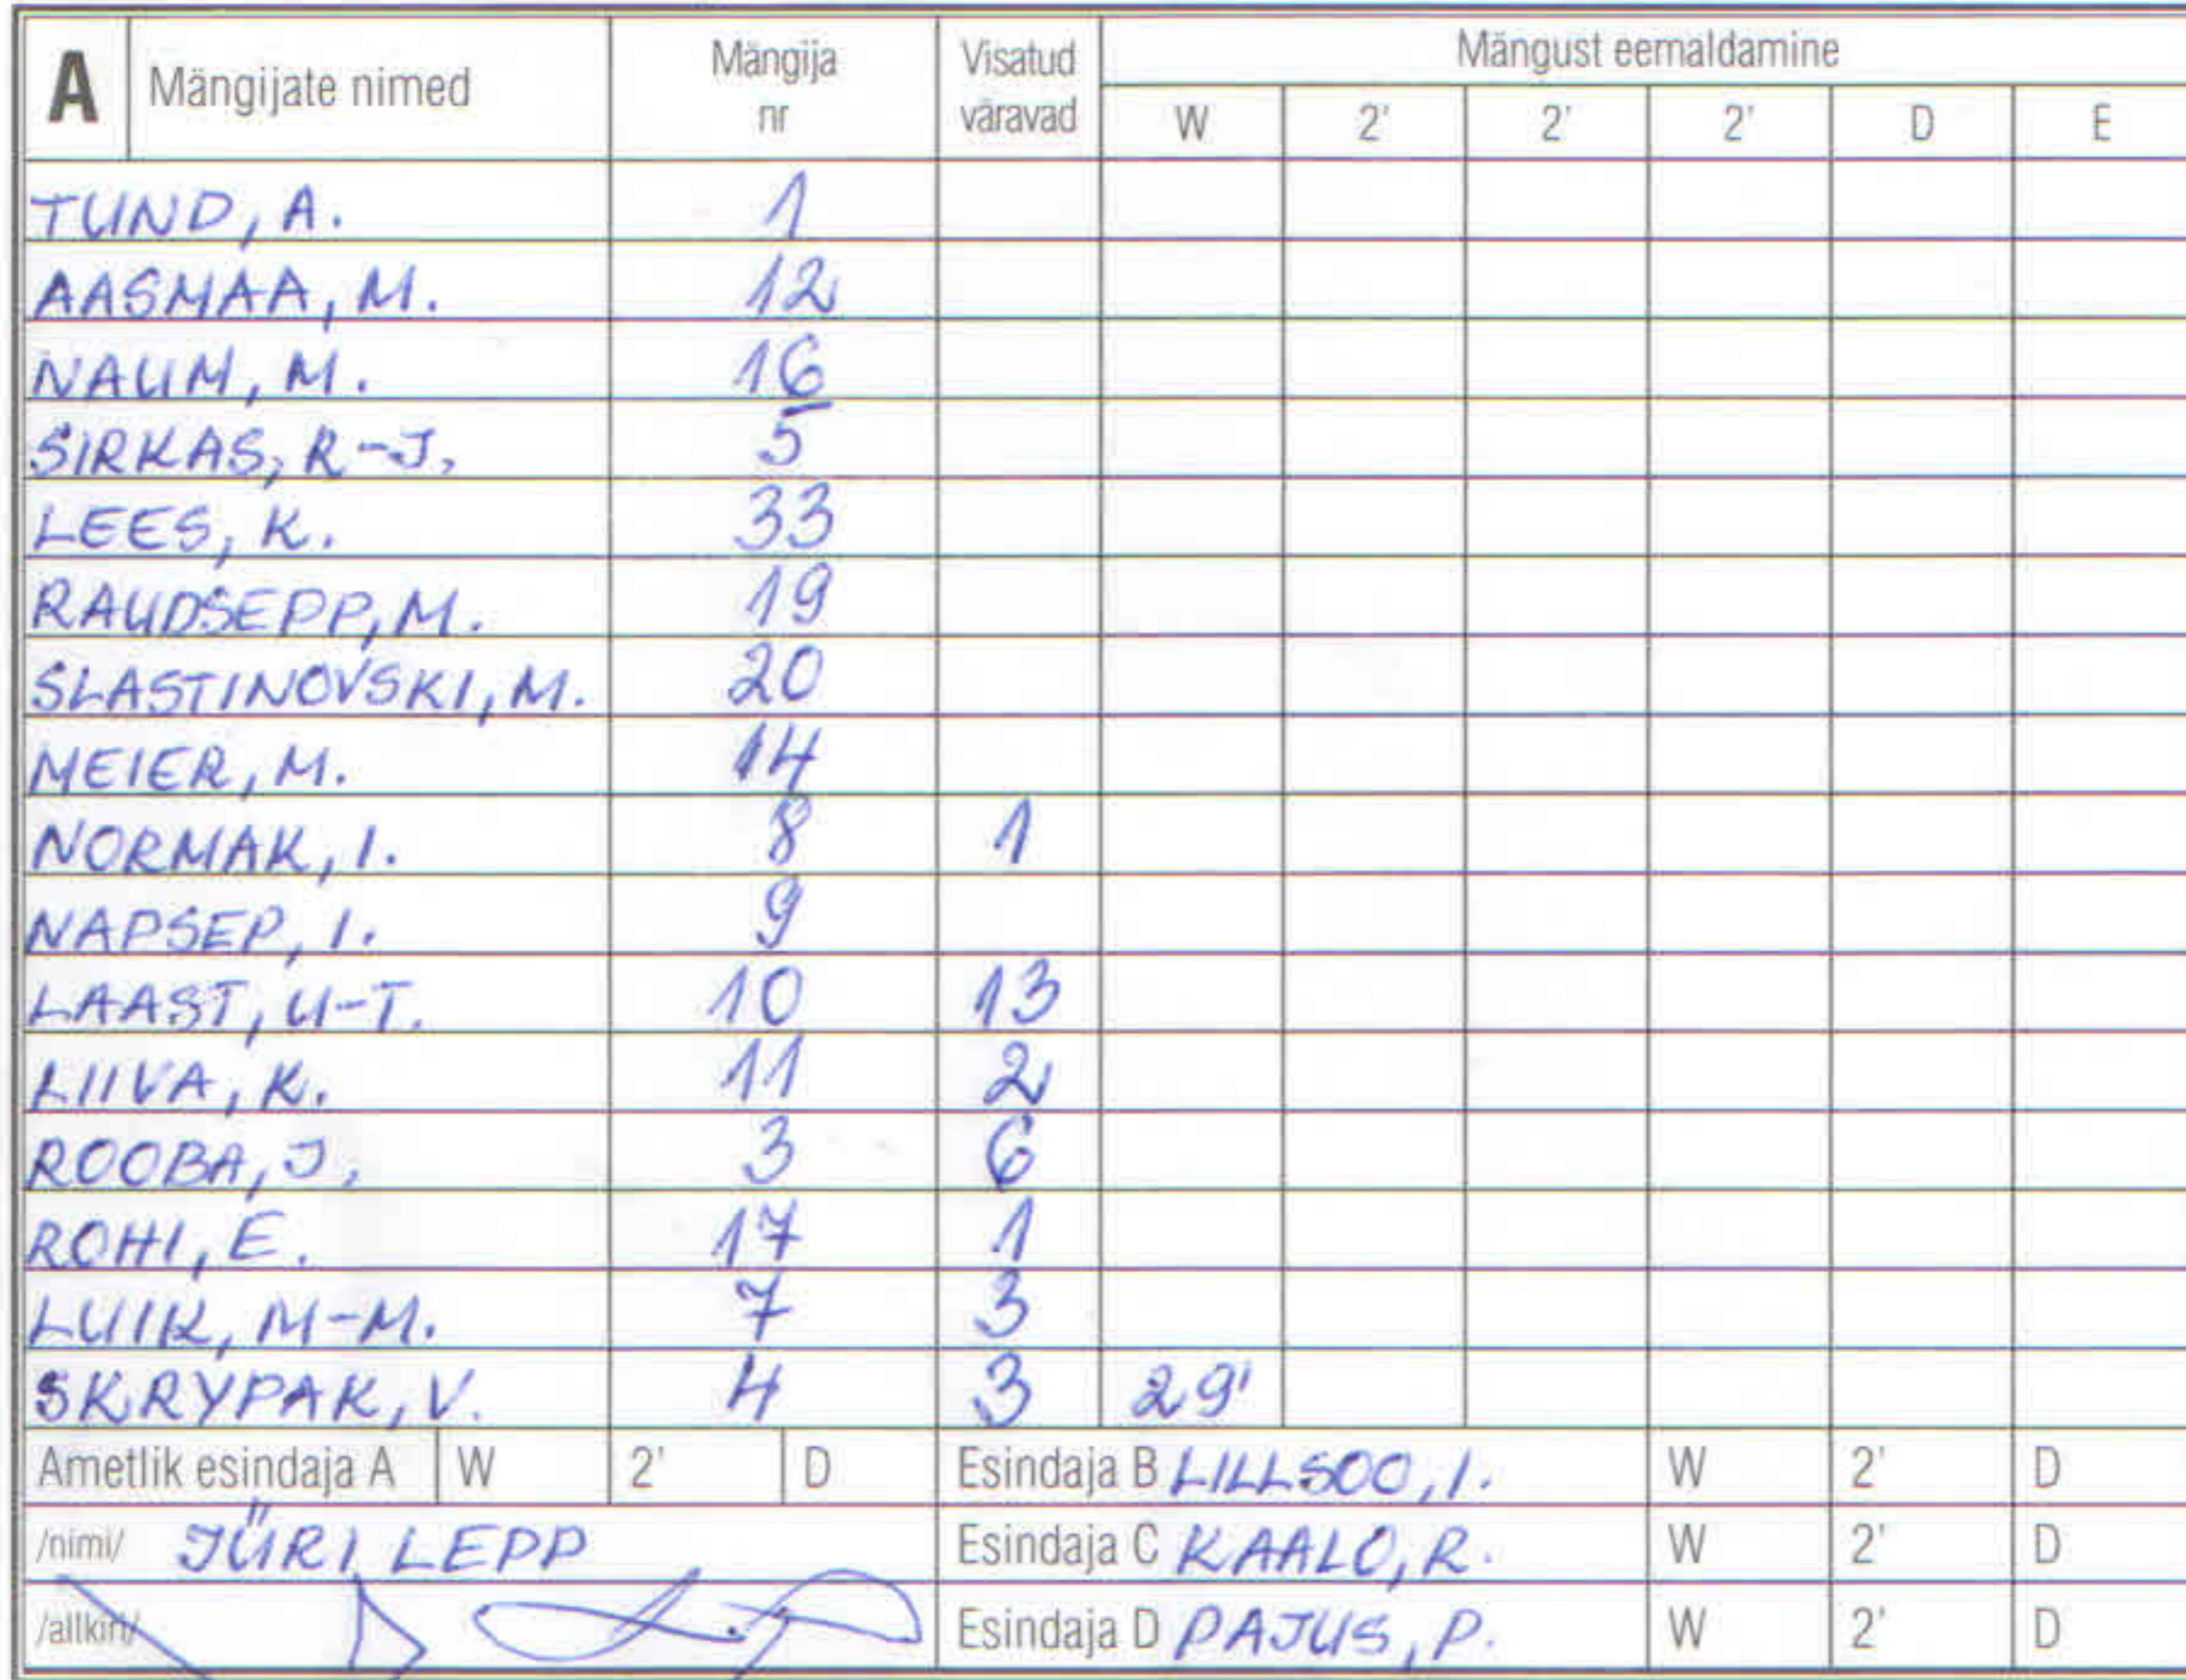 A Mängijate nimed Mängija nr Visatud väravad Mängust eemaldamine
W 2' 2' 2' D E
TUND, A. 1
AASMAA, M. 12
NAUM, M. 16
SIRKAS, R-J. 5
LEES, K. 33
RAUDSEPP, M. 19
SLASTINOVSKI, M. 20
MEIER, M. 14
NORMAK, I. 8 1
NAPSEP, I. 9
LAAST, U-T. 10 13
LIIVA, K. 11 2
ROOBA, J. 3 6
ROHI, E. 17 1
LUIK, M-M. 7 3
SKRYPAK, V. 4 3 29'
Ametlik esindaja A W 2' D Esindaja B LILLSOO, I. W 2' D
/nimi/ JÜRI LEPP Esindaja C KAALO, R. W 2' D
/allkiri/ Esindaja D PAJUS, P. W 2' D